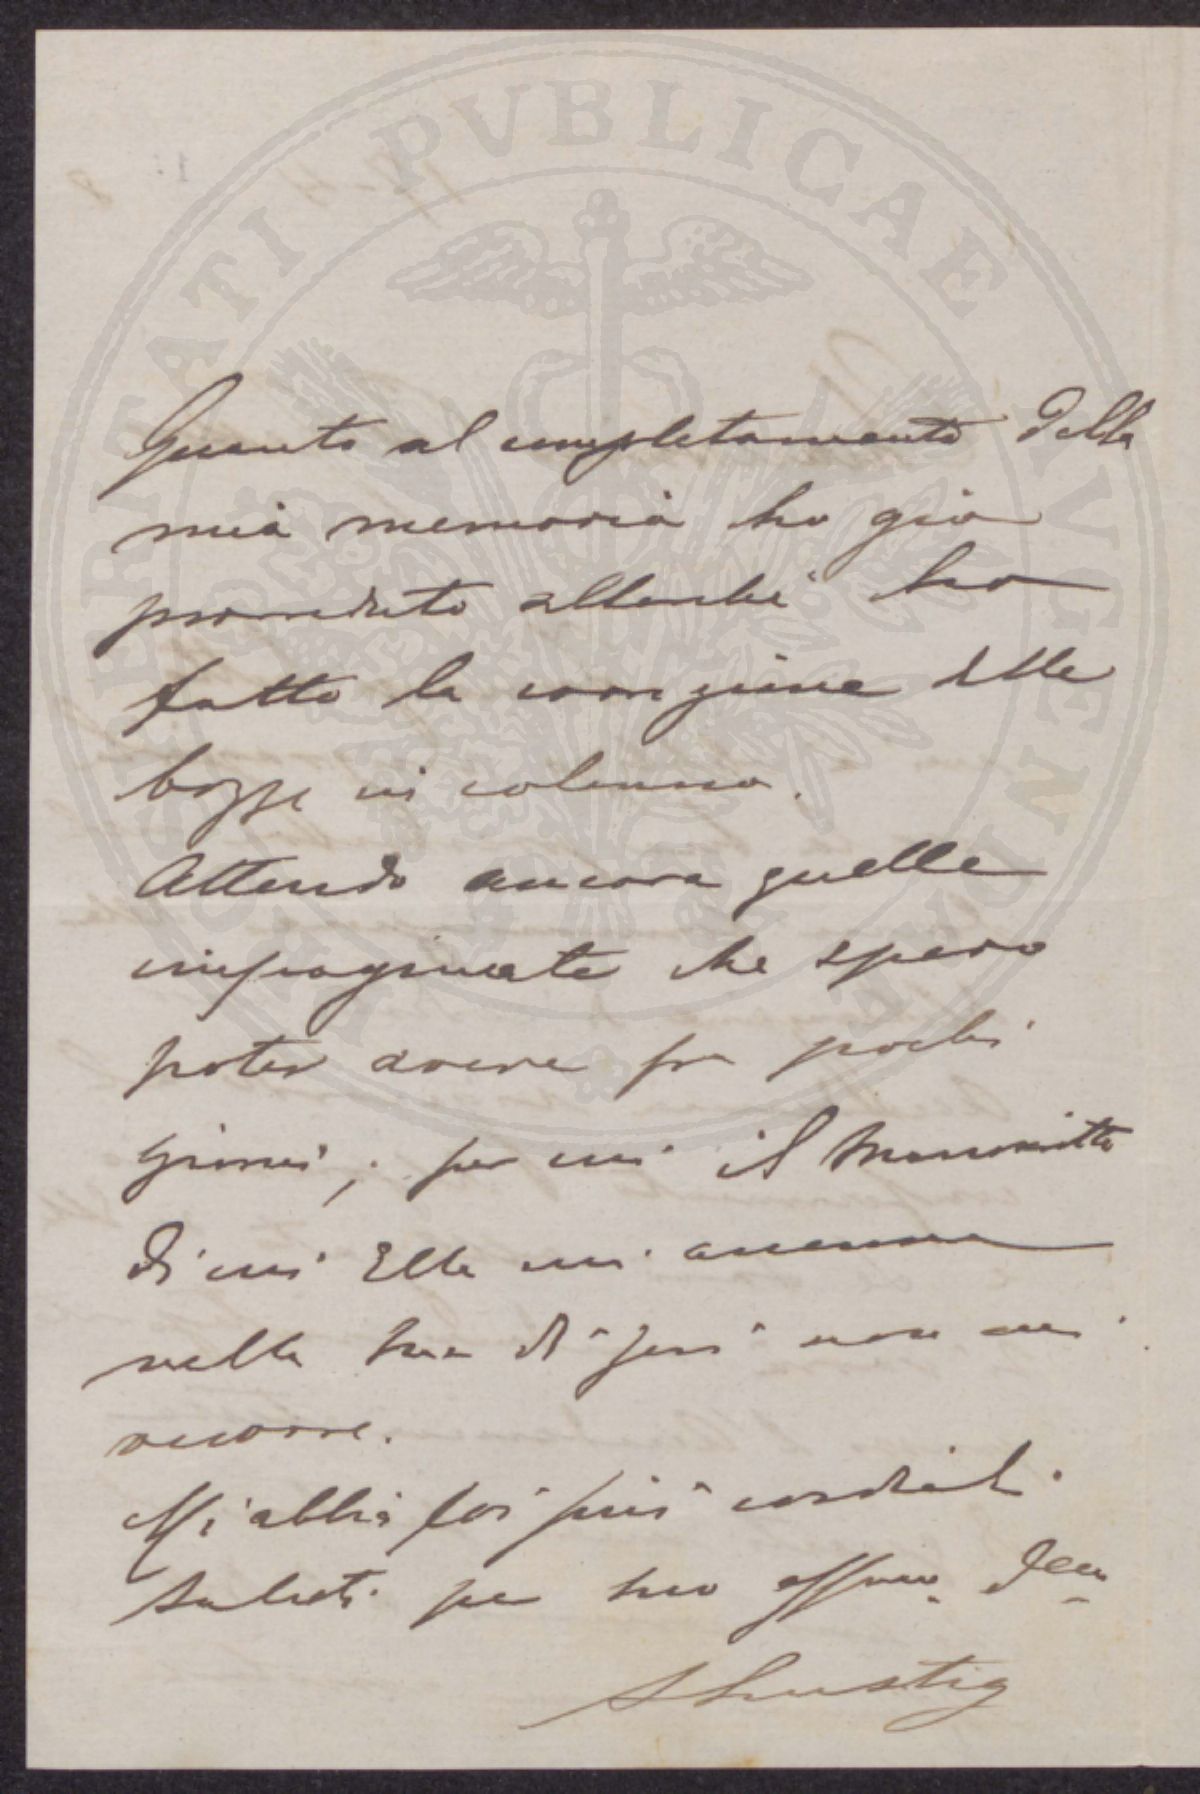 PVBLICAE
Quanto al completamento della
mia memoria ho già
provveduto allorchè ho
fatto la correzione delle
bozze in colonna.
Attendo ancora quelle
impaginate che spero
poter avere fra pochi
giorni; per cui il manoscritto
di cui Ella mi accenna
nella sua di jeri non mi
occorre.
Mi abbia coi più cordiali
saluti pel suo affmo. Dev.
ALustig